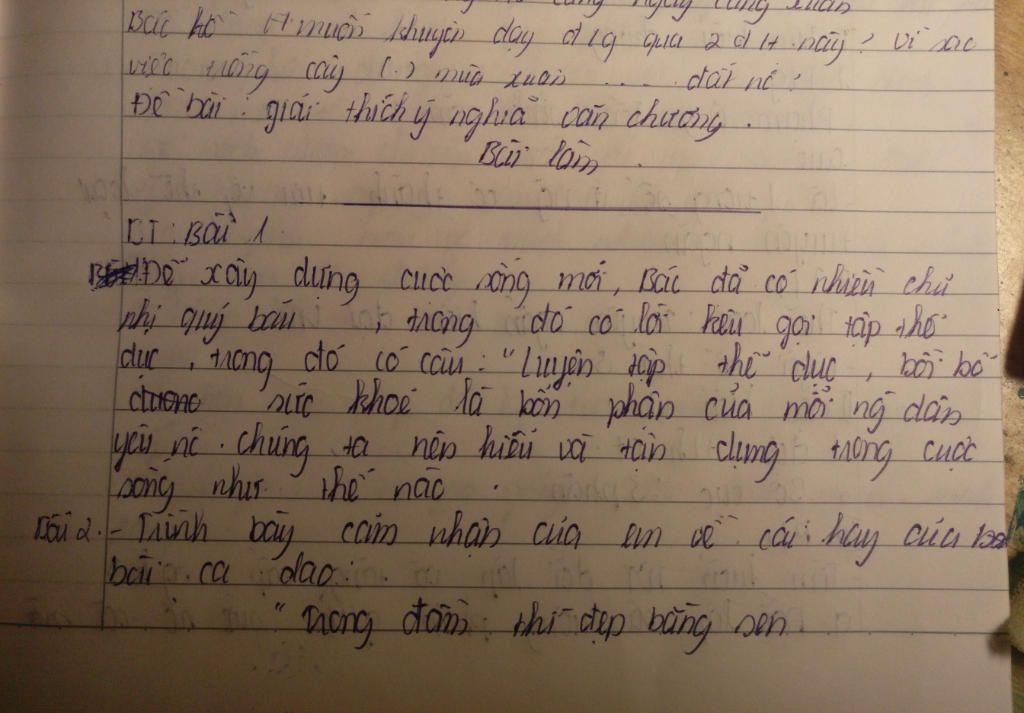 càng ngày càng xuân
Bác Hồ H muốn khuyên dạy đ1g qua 2 d H này? vì sao
việc trồng cây (.) mùa xuân .... đất nc?
Đề bài : giải thích ý nghĩa văn chương.
Bài làm.
ET : Bài 1
Để xây dựng cuộc sống mới, Bác đã có nhiều chỉ
nhị quý báu , trong đó có lời kêu gọi tập thể
dục , trong đó có câu : "Luyện tập thể dục , bồi bổ
sức khoẻ là bổn phận của mỗi ng dân
yêu nc . chúng ta nên hiểu và tận dụng trong cuộc
sống như thế nào .
Bài 2. - Trình bày cảm nhận của em về cái hay của
bài ca dao :
" Trong đầm thì đẹp bằng sen